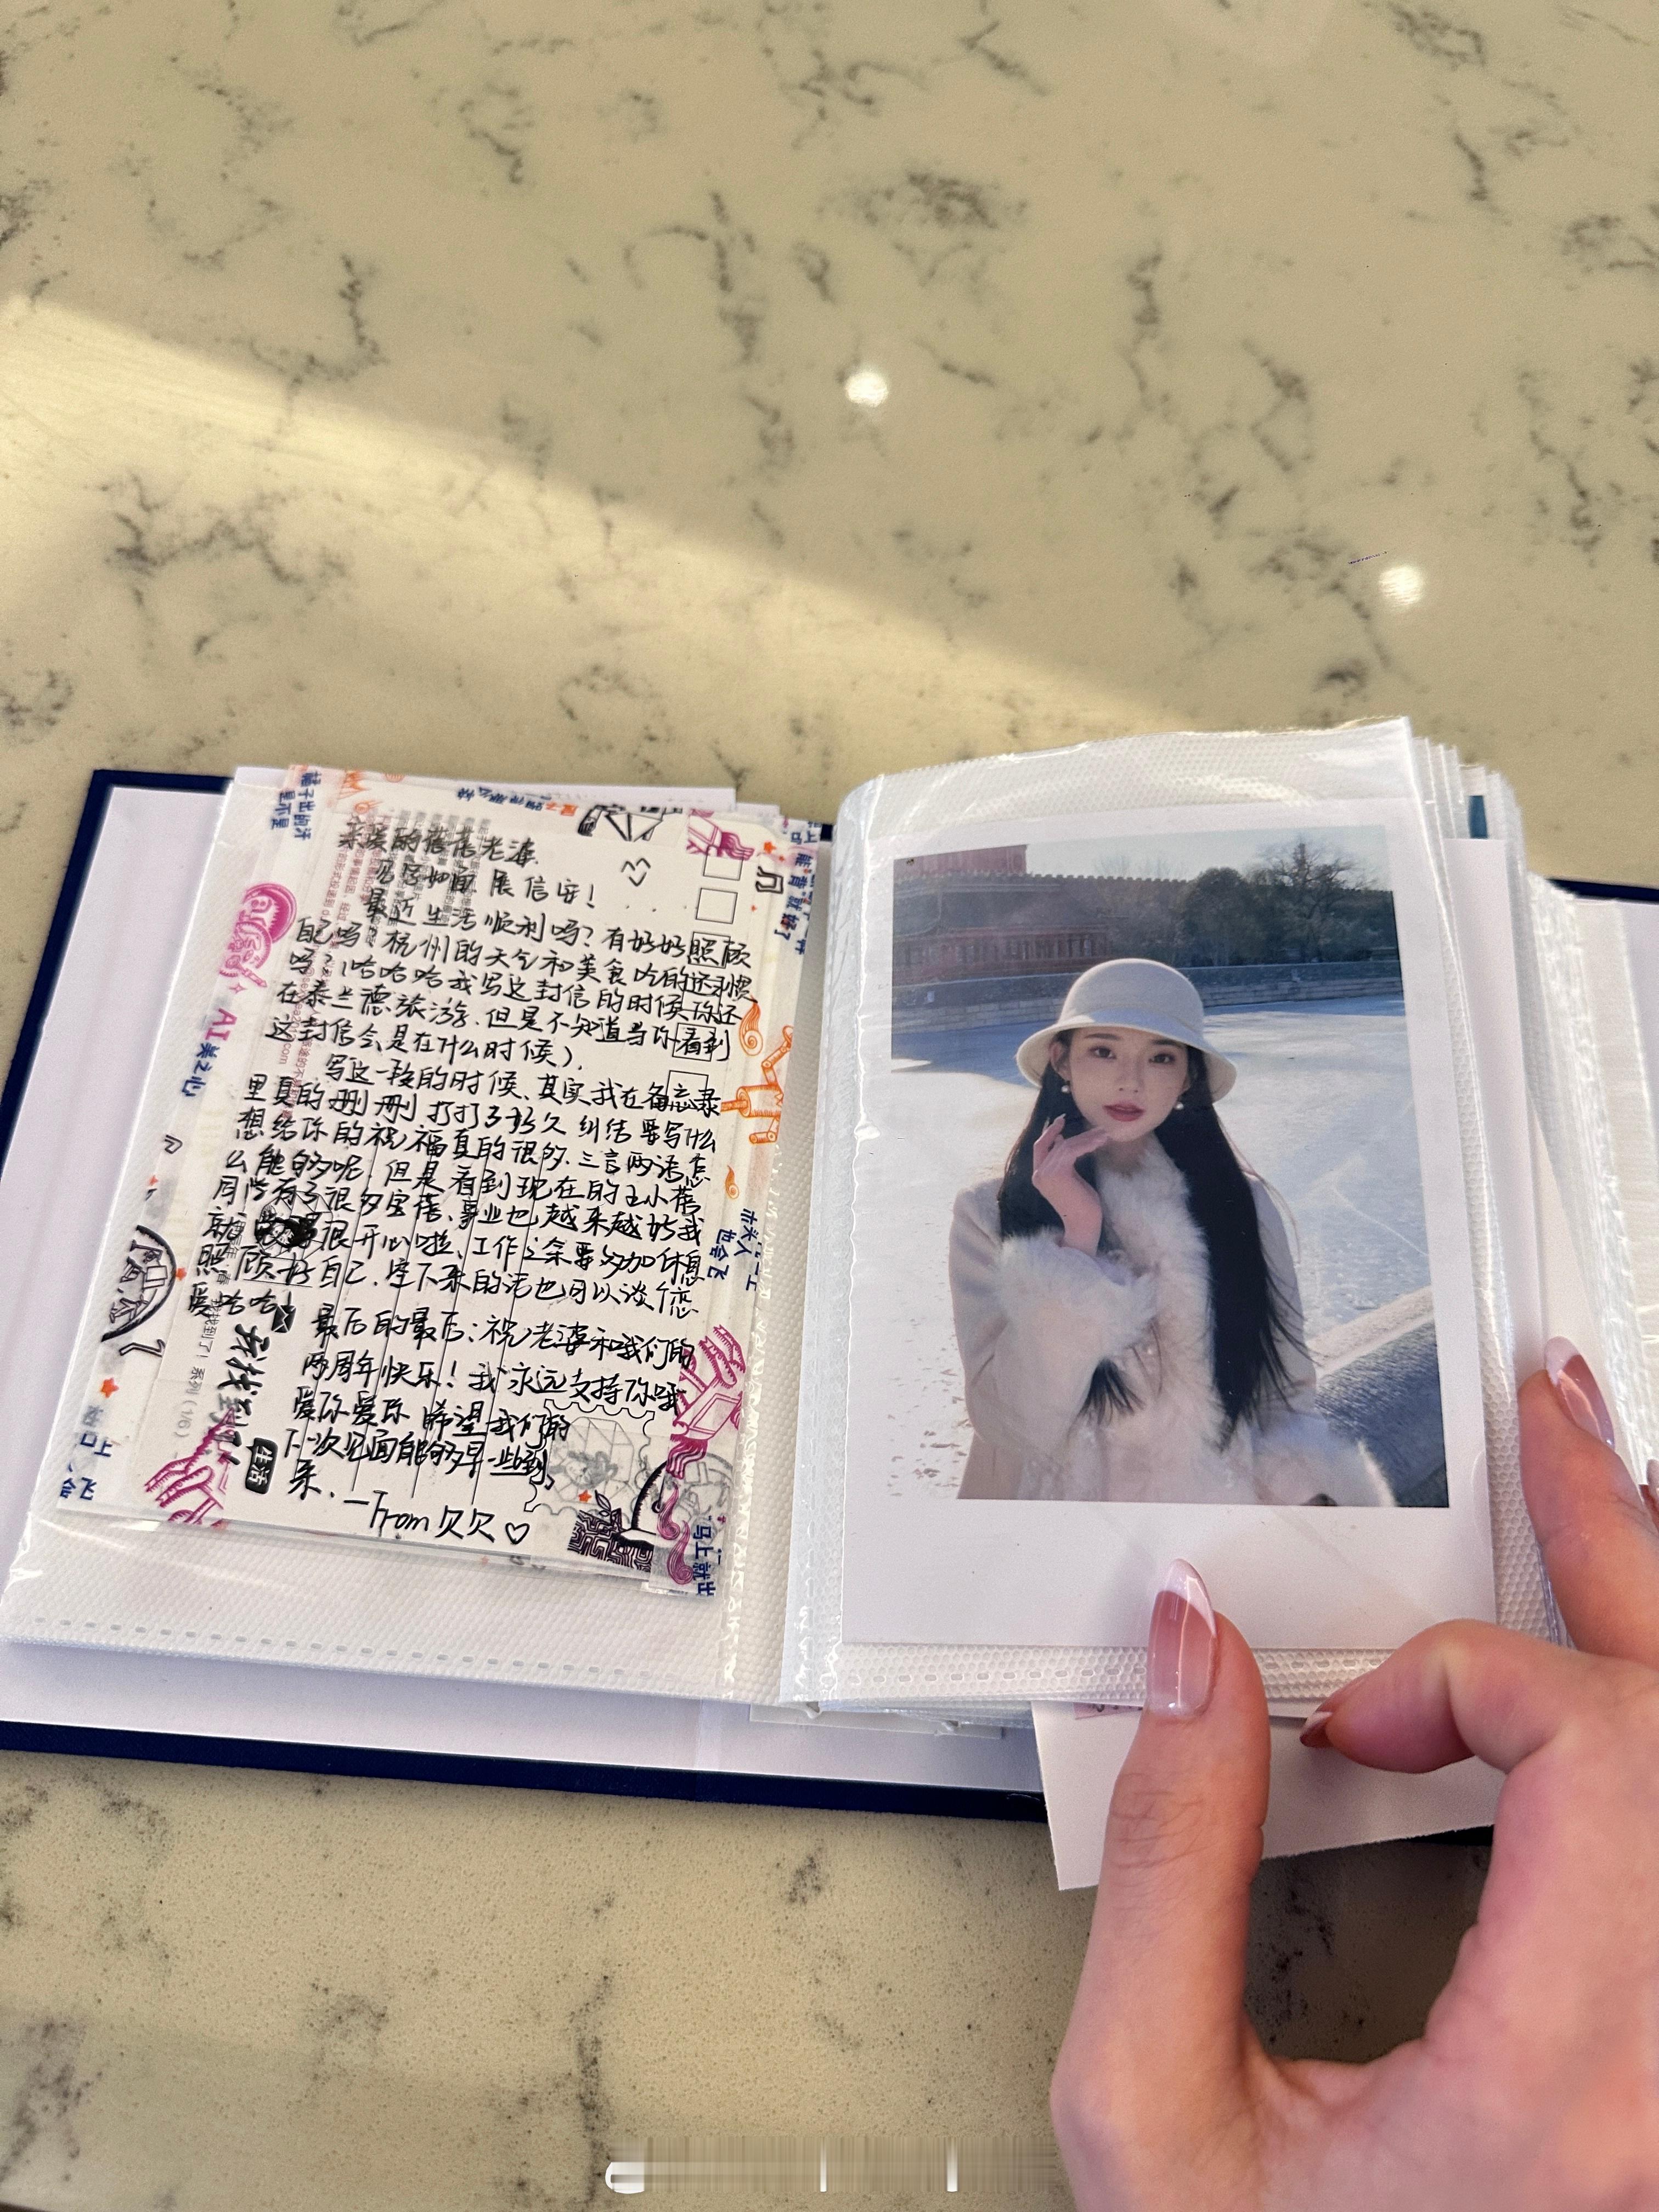 亲爱的蓓蓓老婆.
见字如面 展信安！
最近生活顺利吗？有好好照顾
自己吗？杭州的天气和美食吃的还习惯
吗？（哈哈哈我写这封信的时候你还
在泰兰德旅游.但是不知道当你看到
这封信会是在什么时候）.
写这一段的时候、其实我在备忘录
里真的删删打打了好久 纠结要写什么
想给你的祝福真的很多.三言两语怎
么能够呢.但是看到现在的王小蓓
同学有了很多宝蓓、事业也越来越好我
就 很开心啦、工作之余要多加休息
照顾好自己.空下来的话也可以谈个恋
爱哈哈！
最后的最后：祝老婆和我们的
两周年快乐！我永远支持你哦
爱你爱你 希望我们的
下一次见面能够早一些到
来.
—From 贝贝♡
AI
美之心
我找到了！系列（1/6）
我找到了
生活
能 背 就好了
赤米人
也会飞
马上就出